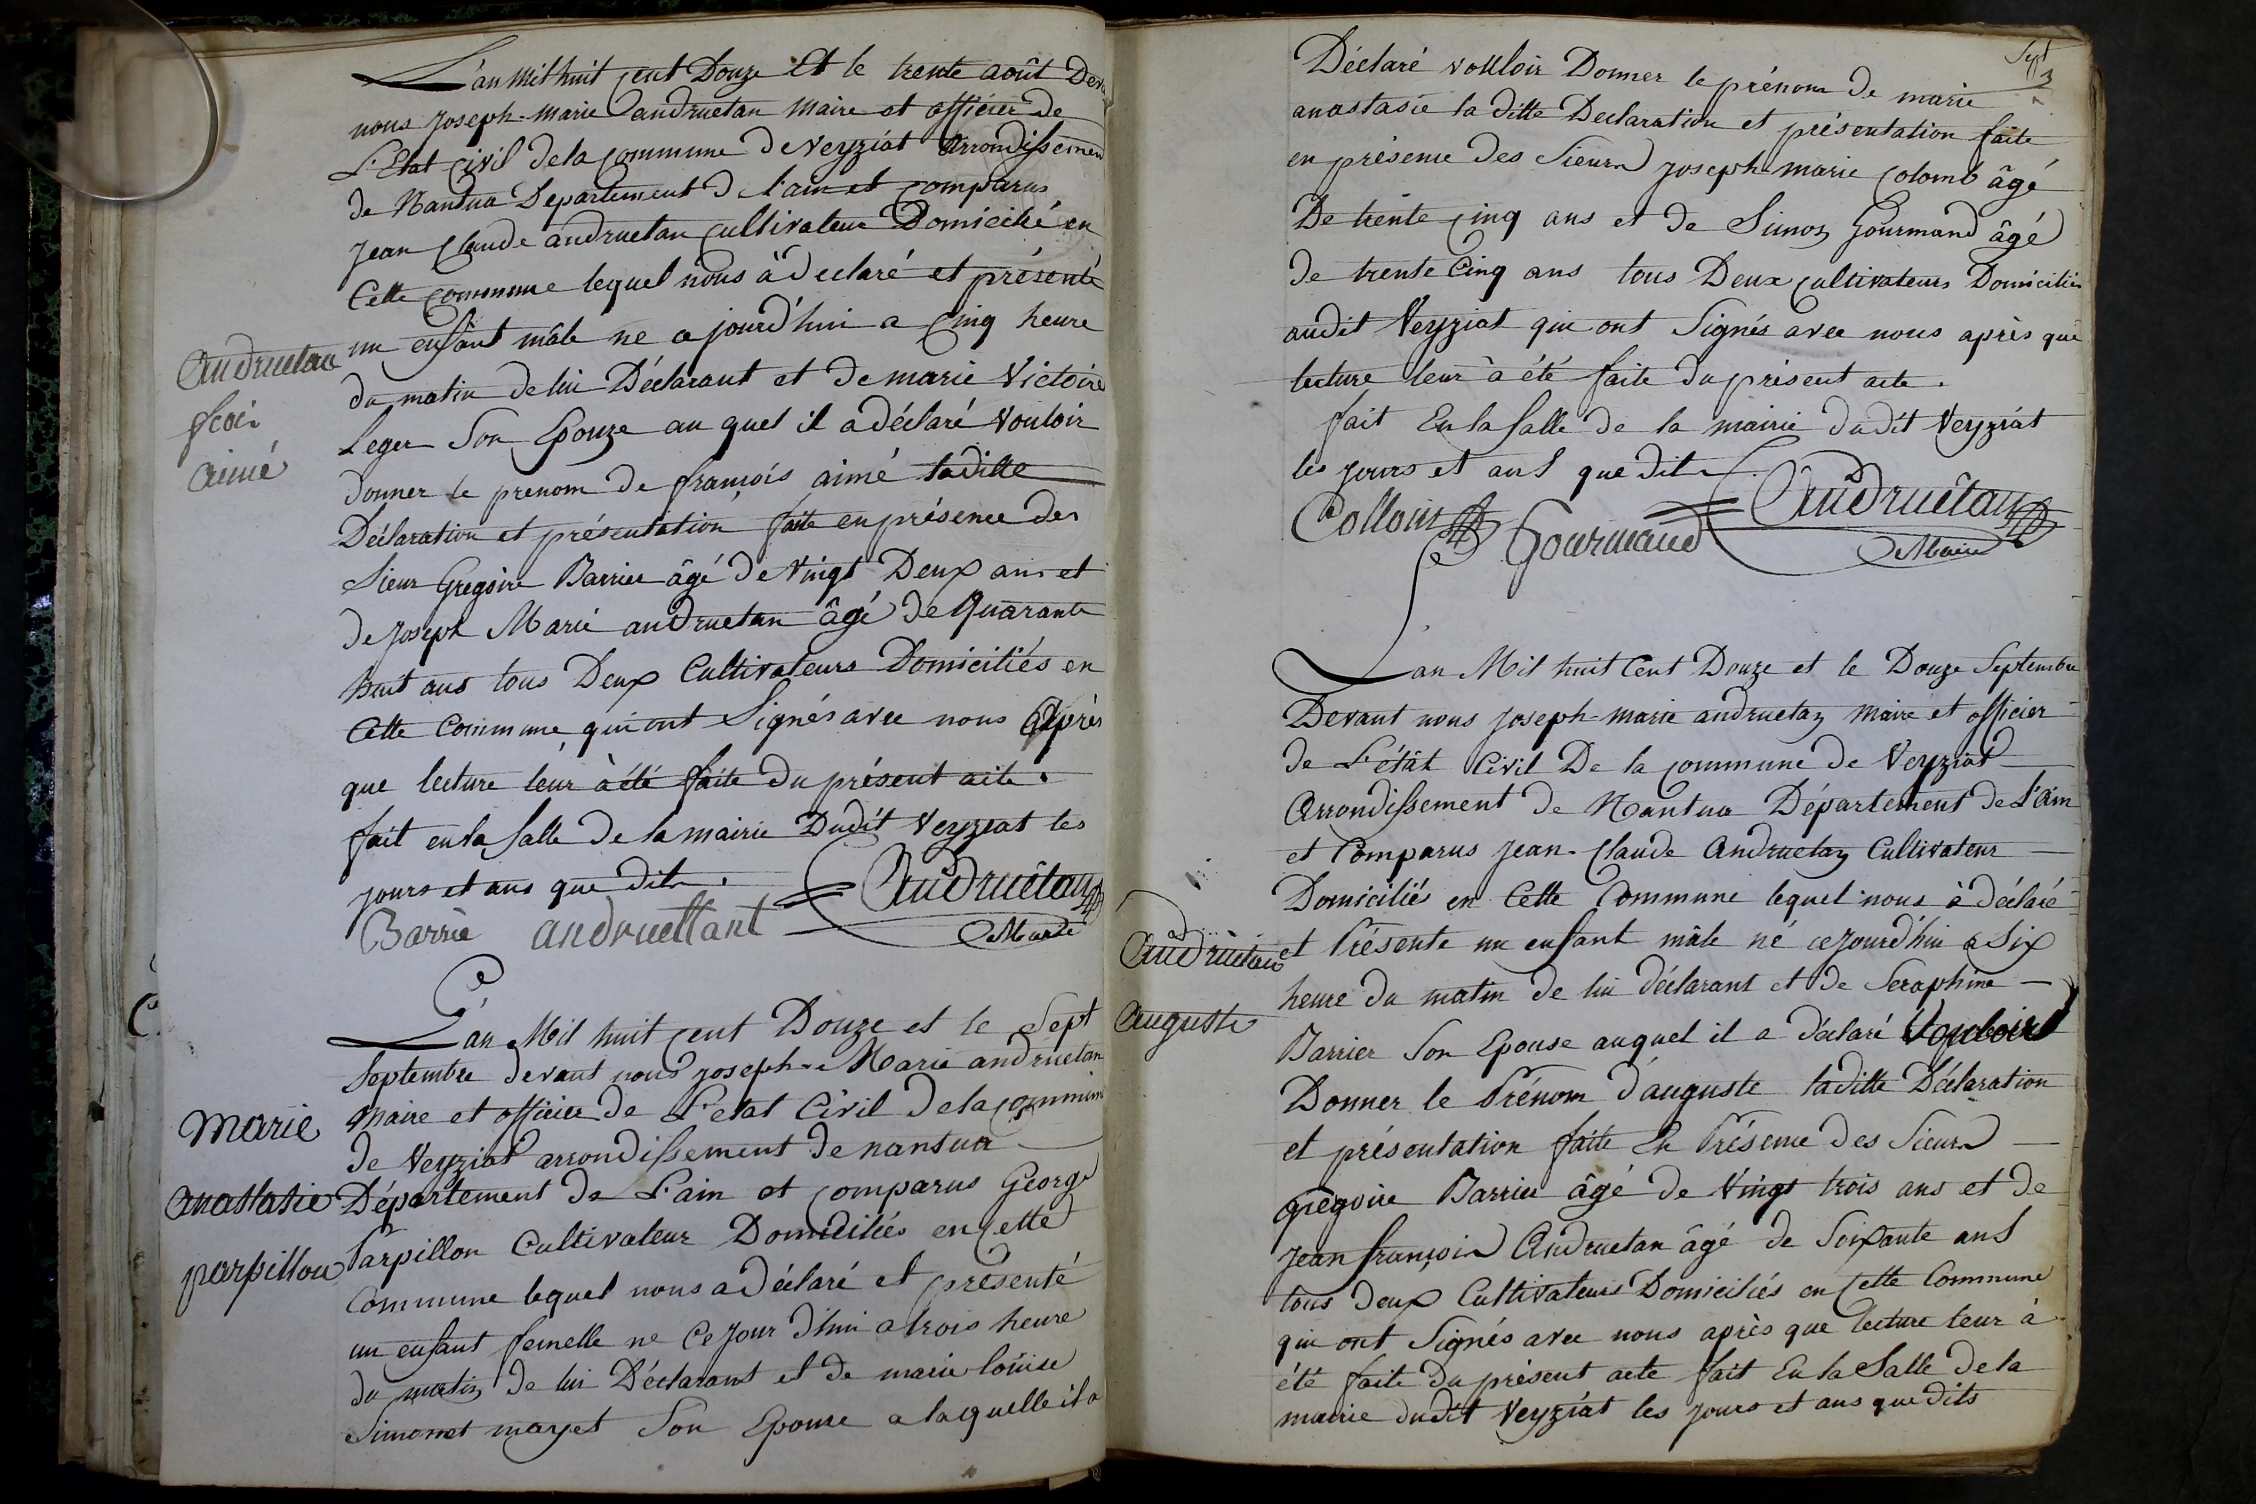 L'an mil huit cent Douze Et le trente août Devant
nous joseph-marie andruetan maire et officier de
L'Etat Civil de la commune de Veyziat arrondissement
de Nantua Departement de l'ain et comparus
jean Claude andruetan cultivateur Domicilié en
Cette commune lequel nous à declaré et présenté
un enfant mâle ne a jourd'hui a Cinq heure
du matin de lui Déclarant et de marie Victoire
Leger Son Epouze au quel il a déclaré vouloir
donner le prenom de françois aimé ladille
Déclaration et présentation faite en présence des
Sieur Gregoire Barrier âgé de Vingt Deux ans et
de joseph Marie andruetan âgé de Quarante
huit ans tous Deux Cultivateurs Domiciliés en
Cette commune, qui ont Signés avec nous après
que lecture leur à été faite du présent acte.
fait en la Salle de la mairie Dudit Veyziat les
jours et ans que dits.
Barrie andruettant Andruêtan
Maire
Andruetan
fcois
aimé
L'an Mil huit cent Douze et le Sept
Septembre devant nous joseph-Marie andruetan
maire et officier de L'etat Civil de la commune
de Veyziat arrondissement de nantua
Département de L'ain et comparus George
Parpillon Cultivateur Domiciliés en Cette
Commune lequel nous a déclaré et présenté
un enfant femelle ne Ce jour d'hui a trois heure
du matin de lui Déclarant et de marie louise
Simonet mayet Son Epouse a laquelle il a
marie
anastasie
parpillon
Sept
3
Déclaré vouloir Donner le prénom de marie
anastasie la ditte Declaration et présentation faite
en présence des Sieurs joseph-marie colomb âgé
De trente cinq ans et de Simon Gourmand âgé
de trente Cinq ans tous Deux cultivateurs Domiciliés
audit Veyziat qui ont Signés avec nous après que
lecture leur à été faite du présent acte.
fait En la Salle de la mairie dudit Veyziat
les jours et ans que dits
Gourmand Andruêtan
Maire
L'an Mil huit Cent Douze et le Douze Septembre
Devant nous joseph-marie andruetan maire et officier
de L'état Civil De la commune de Veyziat
Arrondissement de Nantua Département de L'ain
et Comparus jean-Claude Andruetan Cultivateur
Domiciliés en Cette Commune lequel nous à déclaré
et Présente un enfant mâle né cejourd'hui a Six
heure du matin de lui déclarant et de Seraphine
Barrier Son Epouse auquel il a déclaré Vouloir
Donner le Prénom d'auguste laditte Déclaration
et présentation faite En Présence des Sieurs
gregoire Barrier âgé de Vingt trois ans et de
jean françois Andruetan âgé de Soixante ans
tous deux Cultivateurs Domiciliés en Cette Commune
qui ont Signés avec nous après que lecture leur à
été faite du présent acte fait En la Salle de la
mairie dudit Veyziat les jours et ans que dits
Andruêtan
Auguste